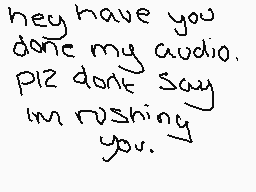 hey have you
done my audio.
plz dont say
im rushing
you.